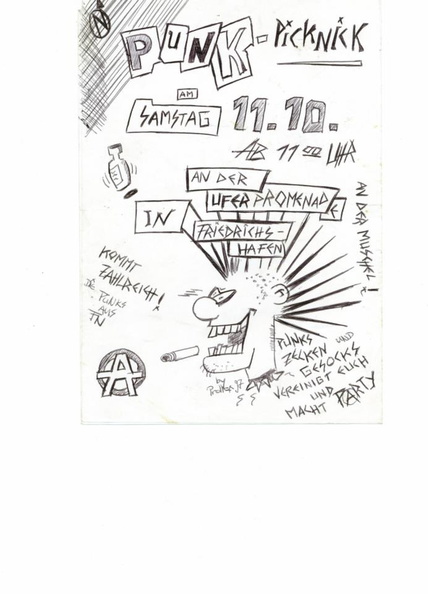 PUNK - PiCKNiCK
AM
SAMSTAG 11.10.
AB 11 00 UHR
AN DER
UFERPROMENADE
IN FRIEDRICHS-
HAFEN
AN DER MUSCHEL!
KOMMT
ZAHLREICH!
DE PUNKS
AUS
TN
PUNKS UND
ZECKEN
GESOCKS
VEREINIGT EUCH
UND
MACHT PARTY
by